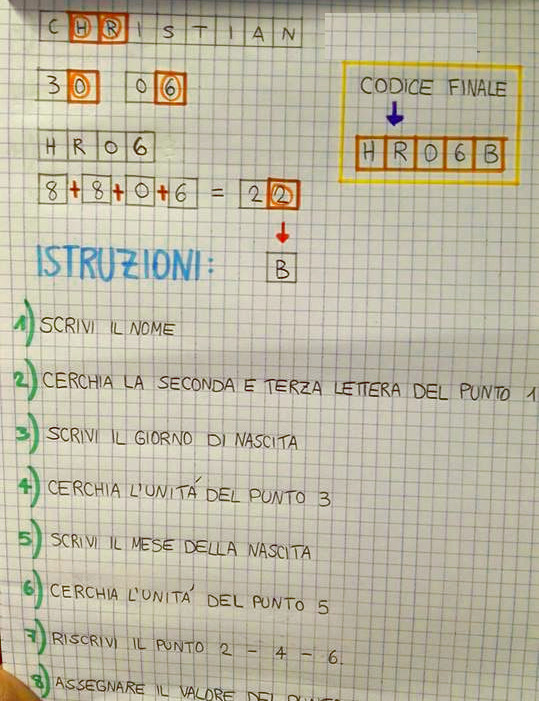 CHRISTIAN
30 06
CODICE FINALE
HR06
HR06B
8+8+0+6=22
B
ISTRUZIONI:
1) SCRIVI IL NOME
2) CERCHIA LA SECONDA E TERZA LETTERA DEL PUNTO 1
3) SCRIVI IL GIORNO DI NASCITA
4) CERCHIA L'UNITÁ DEL PUNTO 3
5) SCRIVI IL MESE DELLA NASCITA
6) CERCHIA L'UNITA' DEL PUNTO 5
7) RISCRIVI IL PUNTO 2 - 4 - 6.
8) ASSEGNARE IL VALORE DEL